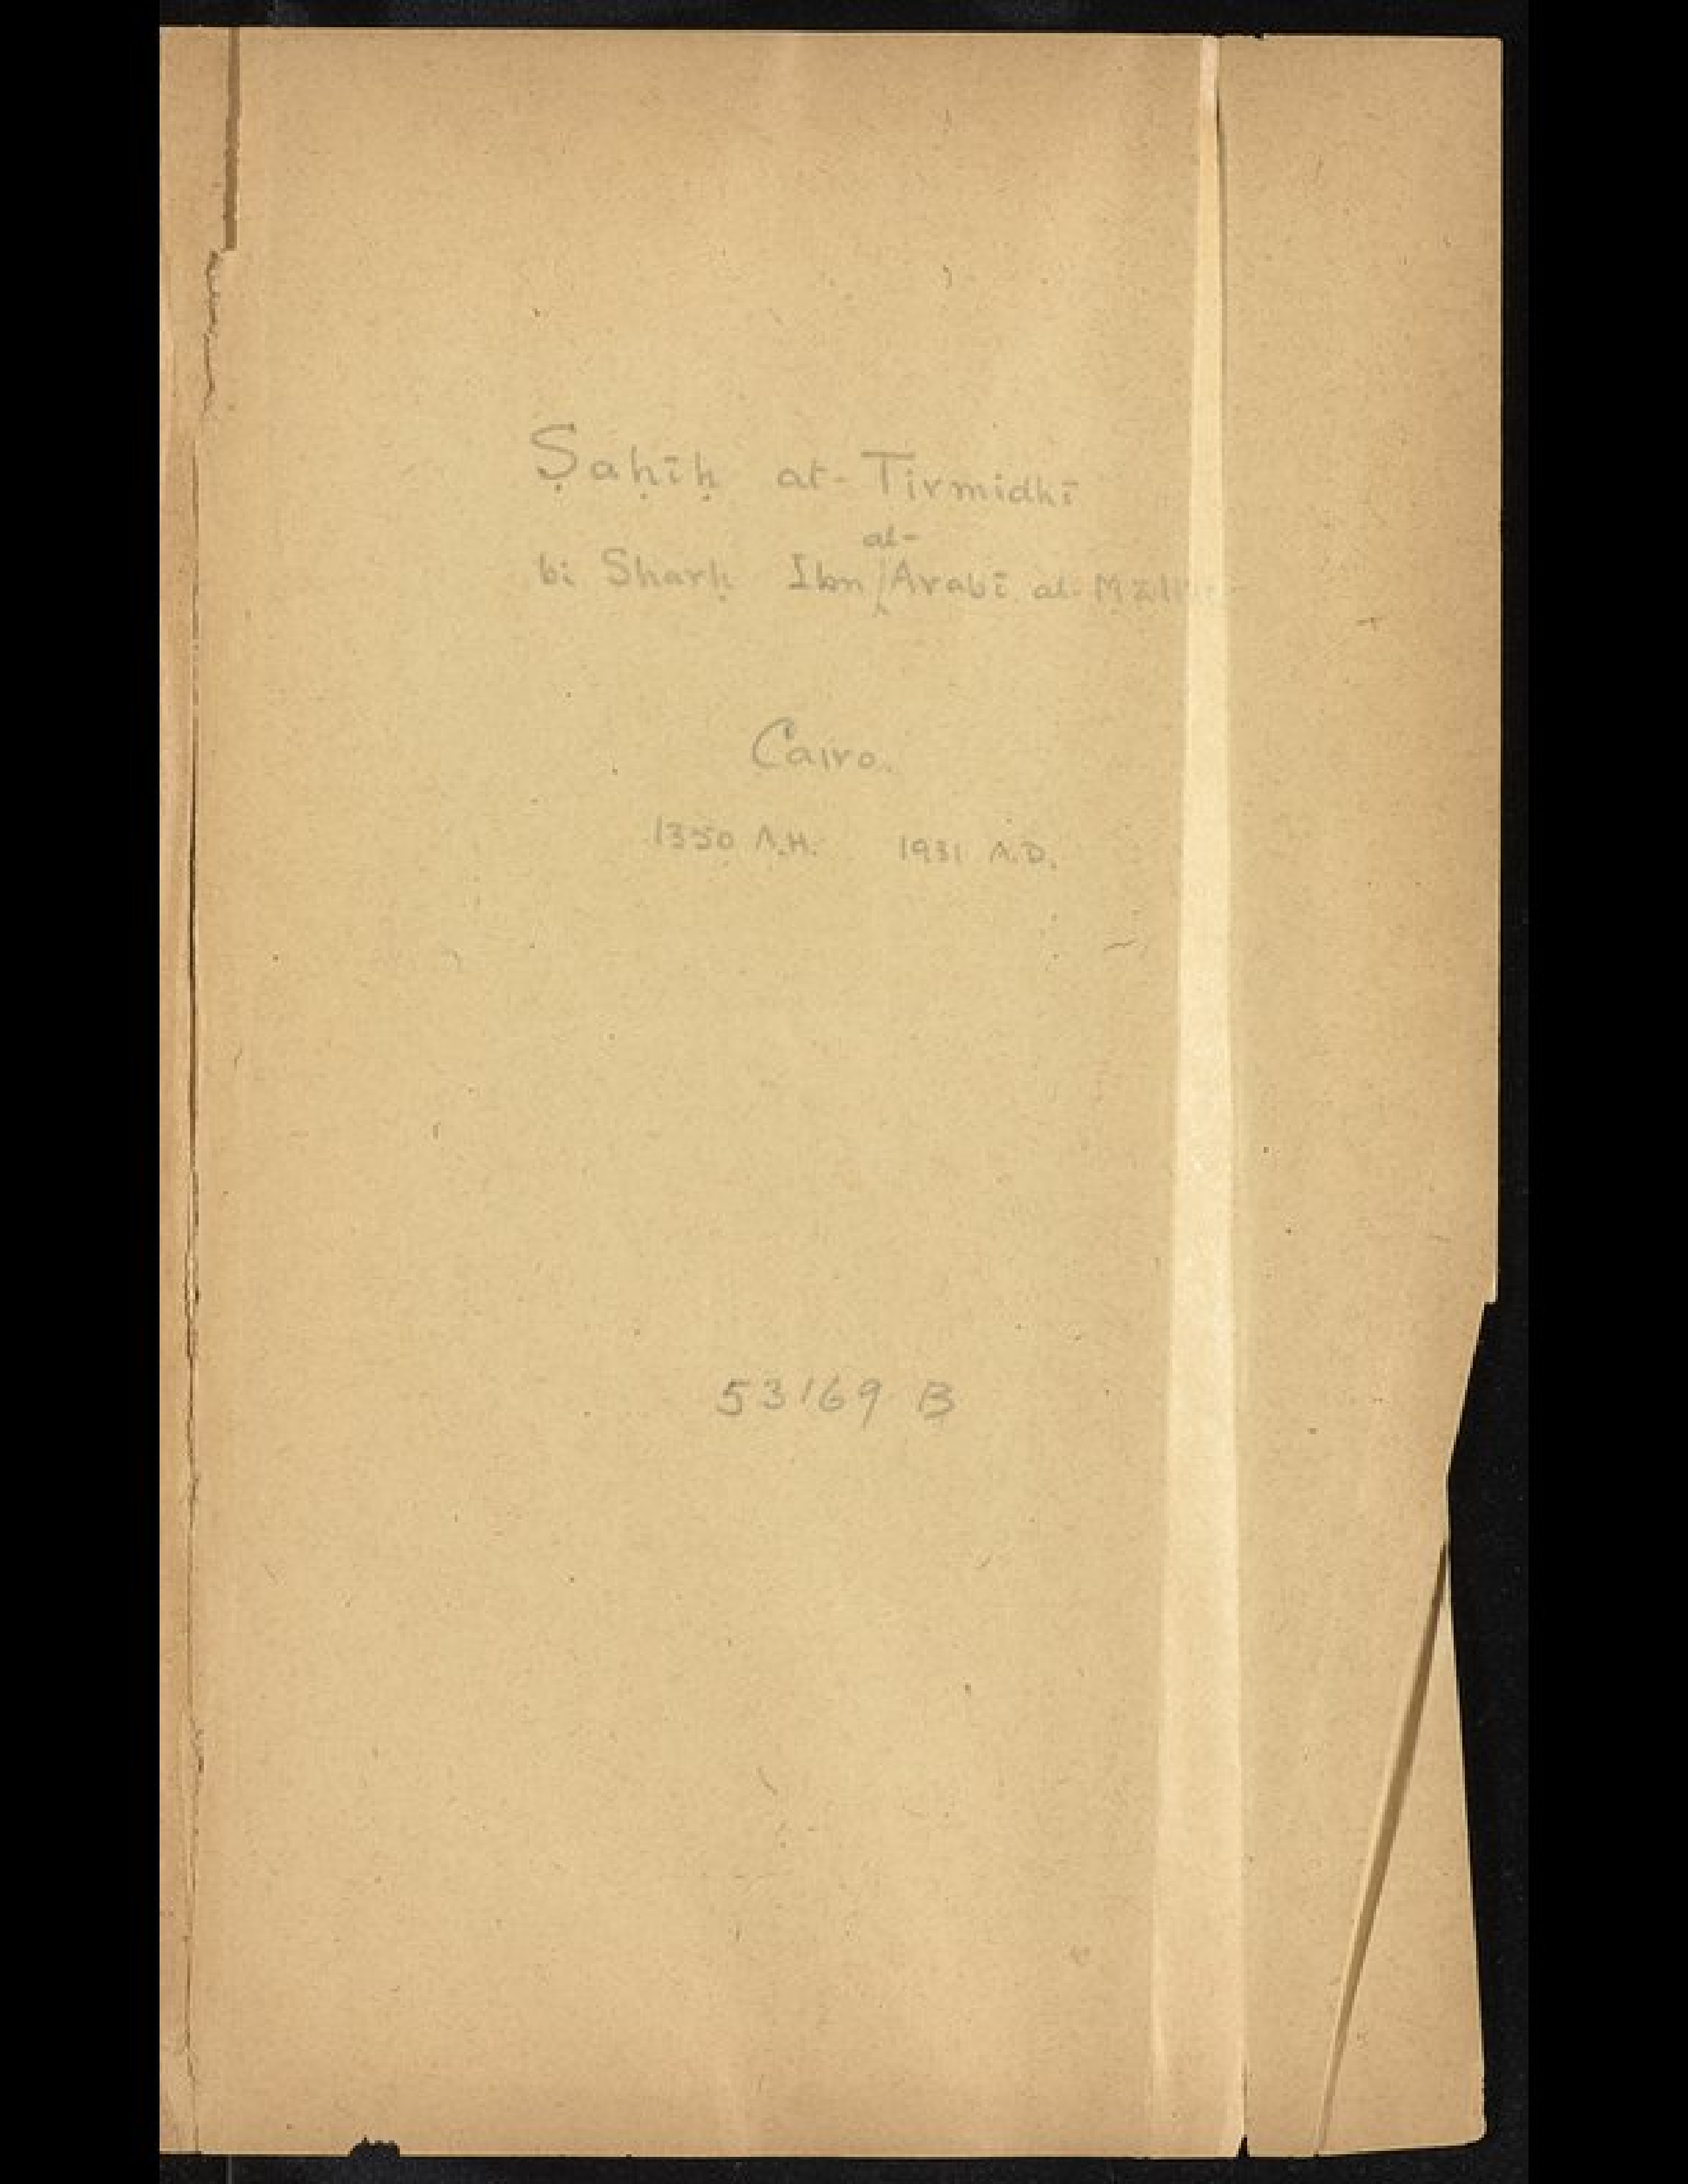 Ṣaḥīḥ at-Tirmidhī
bi Sharḥ Ibn al-Arabī
Cairo.
1350 A.H. 1931 A.D.
53169 B